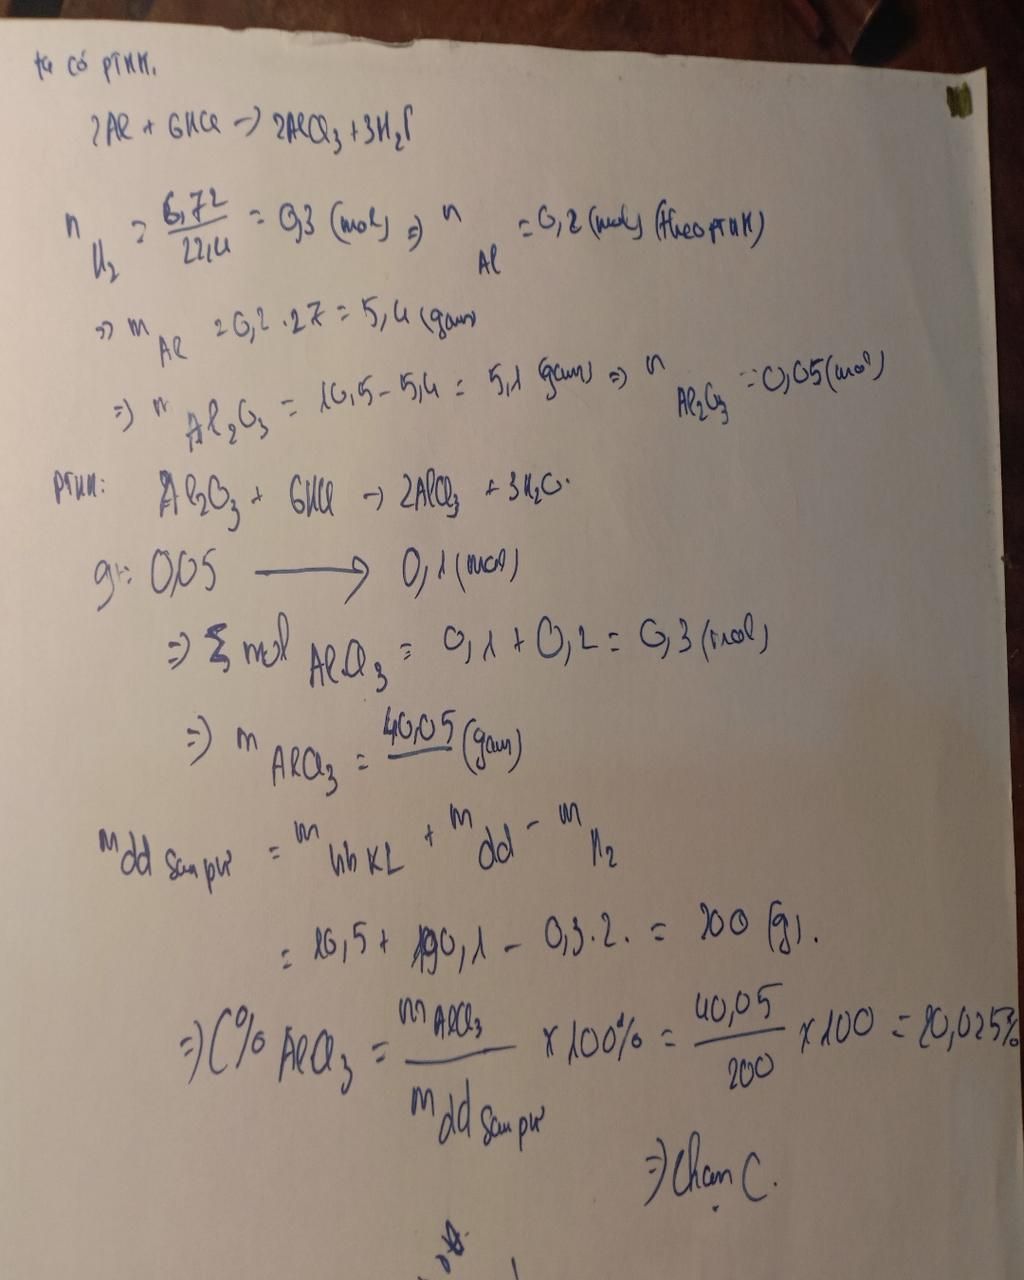 ta có PTHH.
2Al + 6HCl -> 2AlCl3 + 3H2↑
n H2 = 6,72/22,4 = 0,3 (mol) => n Al = 0,2 (mol) (theo PTHH)
=> m Al = 0,2 . 27 = 5,4 (gam)
=> m Al2O3 = 10,5 - 5,4 = 5,1 (gam) => n Al2O3 = 0,05 (mol)
PTHH: Al2O3 + 6HCl -> 2AlCl3 + 3H2O.
gt: 0,05 -> 0,1 (mol)
=> Σ mol AlCl3 = 0,1 + 0,2 = 0,3 (mol)
=> m AlCl3 = 40,05 (gam)
m dd sau pứ = m hh KL + m dd - m H2
= 10,5 + 190,1 - 0,3.2. = 200 (g).
=> C% AlCl3 = m AlCl3 / m dd sau pứ x 100% = 40,05/200 x 100 = 20,025%
=> Chọn C.